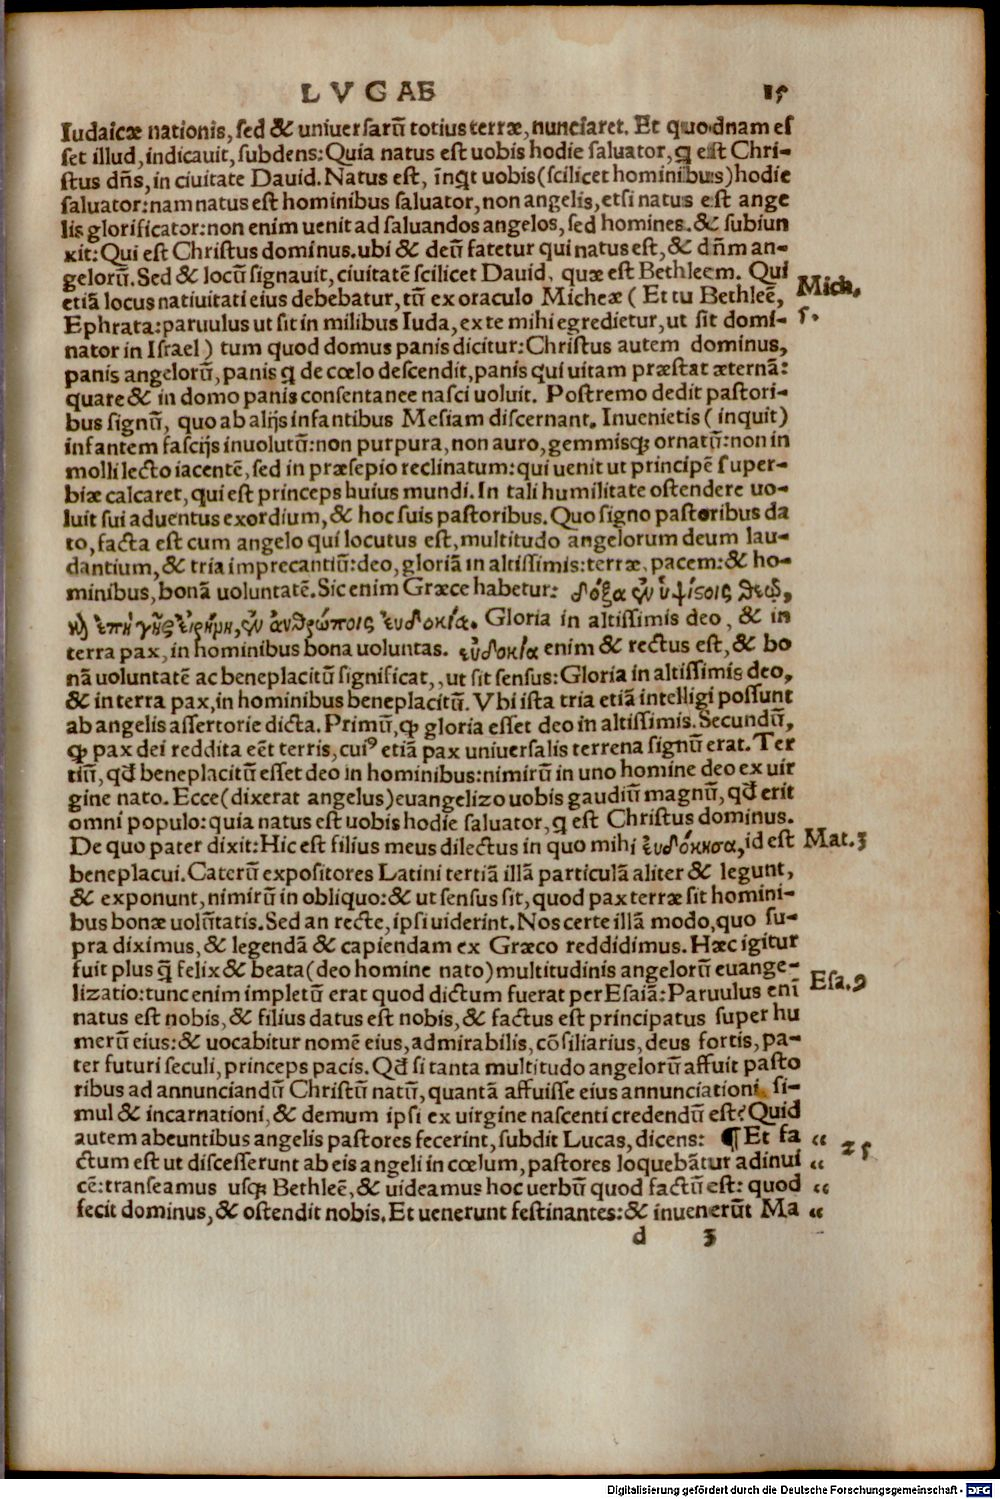 LVCAE 15
Iudaicæ nationis, sed & uniuersarū totius terræ, nunciaret. Et quodnam es
set illud, indicauit, subdens: Quia natus est uobis hodie saluator, q est Chri-
stus dñs, in ciuitate Dauid. Natus est, inqt uobis (scilicet hominibus) hodie
saluator: nam natus est hominibus saluator, non angelis, etsi natus est ange
lis glorificator: non enim uenit ad saluandos angelos, sed homines. & subiun
xit: Qui est Christus dominus. ubi & deū fatetur qui natus est, & dñm an-
gelorū. Sed & locū signauit, ciuitatē scilicet Dauid, quæ est Bethleem. Qui
etiā locus natiuitati eius debebatur, tū ex oraculo Micheæ (Et tu Bethleē, Mich.
Ephrata: paruulus ut sit in milibus Iuda, ex te mihi egredietur, ut sit domi- 5.
nator in Israel) tum quod domus panis dicitur: Christus autem dominus,
panis angelorū, panis q de cœlo descendit, panis qui uitam præstat æternā:
quare & in domo panis consentanee nasci uoluit. Postremo dedit pastori-
bus signū, quo ab alijs infantibus Mesiam discernant. Inuenietis (inquit)
infantem fascijs inuolutū: non purpura, non auro, gemmisq; ornatū: non in
molli lecto iacentē, sed in præsepio reclinatum: qui uenit ut principē super-
biæ calcaret, qui est princeps huius mundi. In tali humilitate ostendere uo-
luit sui aduentus exordium, & hoc suis pastoribus. Quo signo pastoribus da
to, facta est cum angelo qui locutus est, multitudo angelorum deum lau-
dantium, & tria imprecantiū: deo, gloriā in altissimis: terræ, pacem: & ho-
minibus, bonā uoluntatē. Sic enim Græce habetur: δόξα ἐν ὑψίστοις θεῷ,
καὶ ἐπὶ γῆς εἰρήνη, ἐν ἀνθρώποις ἐυδοκία. Gloria in altissimis deo, & in
terra pax, in hominibus bona uoluntas. εὐδοκία enim & rectus est, & bo
nā uoluntatē ac beneplacitū significat,, ut sit sensus: Gloria in altissimis deo,
& in terra pax, in hominibus beneplacitū. Vbi ista tria etiā intelligi possunt
ab angelis assertorie dicta. Primū, qȝ gloria esset deo in altissimis. Secundū,
qȝ pax dei reddita eēt terris, cui⁹ etiā pax uniuersalis terrena signū erat. Ter
tiū, qđ beneplacitū esset deo in hominibus: nimirū in uno homine deo ex uir
gine nato. Ecce (dixerat angelus) euangelizo uobis gaudiū magnū, qđ erit
omni populo: quia natus est uobis hodie saluator, q est Christus dominus.
De quo pater dixit: Hic est filius meus dilectus in quo mihi ἐυδόκησα, id est Mat. 3
beneplacui. Caterū expositores Latini tertiā illā particulā aliter & legunt,
& exponunt, nimirū in obliquo: & ut sensus sit, quod pax terræ sit homini-
bus bonæ uolūtatis. Sed an recte, ipsi uiderint. Nos certe illā modo, quo su-
pra diximus, & legendā & capiendam ex Græco reddidimus. Hæc igitur
fuit plus q̄ felix & beata (deo homine nato) multitudinis angelorū euange-
lizatio: tunc enim impletū erat quod dictum fuerat per Esaiā: Paruulus enī Esa. 9
natus est nobis, & filius datus est nobis, & factus est principatus super hu
merū eius: & uocabitur nomē eius, admirabilis, cōsiliarius, deus fortis, pa-
ter futuri seculi, princeps pacis. Qđ si tanta multitudo angelorū affuit pasto
ribus ad annunciandū Christū natū, quantā affuisse eius annunciationi si-
mul & incarnationi, & demum ipsi ex uirgine nascenti credendū est? Quid
autem abeuntibus angelis pastores fecerint, subdit Lucas, dicens: ¶ Et fa „ 25
ctum est ut discesserunt ab eis angeli in cœlum, pastores loquebātur adinui „
cē: transeamus usq; Bethleē, & uideamus hoc uerbū quod factū est: quod „
fecit dominus, & ostendit nobis. Et uenerunt festinantes: & inuenerūt Ma „
d 3
Digitalisierung gefördert durch die Deutsche Forschungsgemeinschaft - DFG